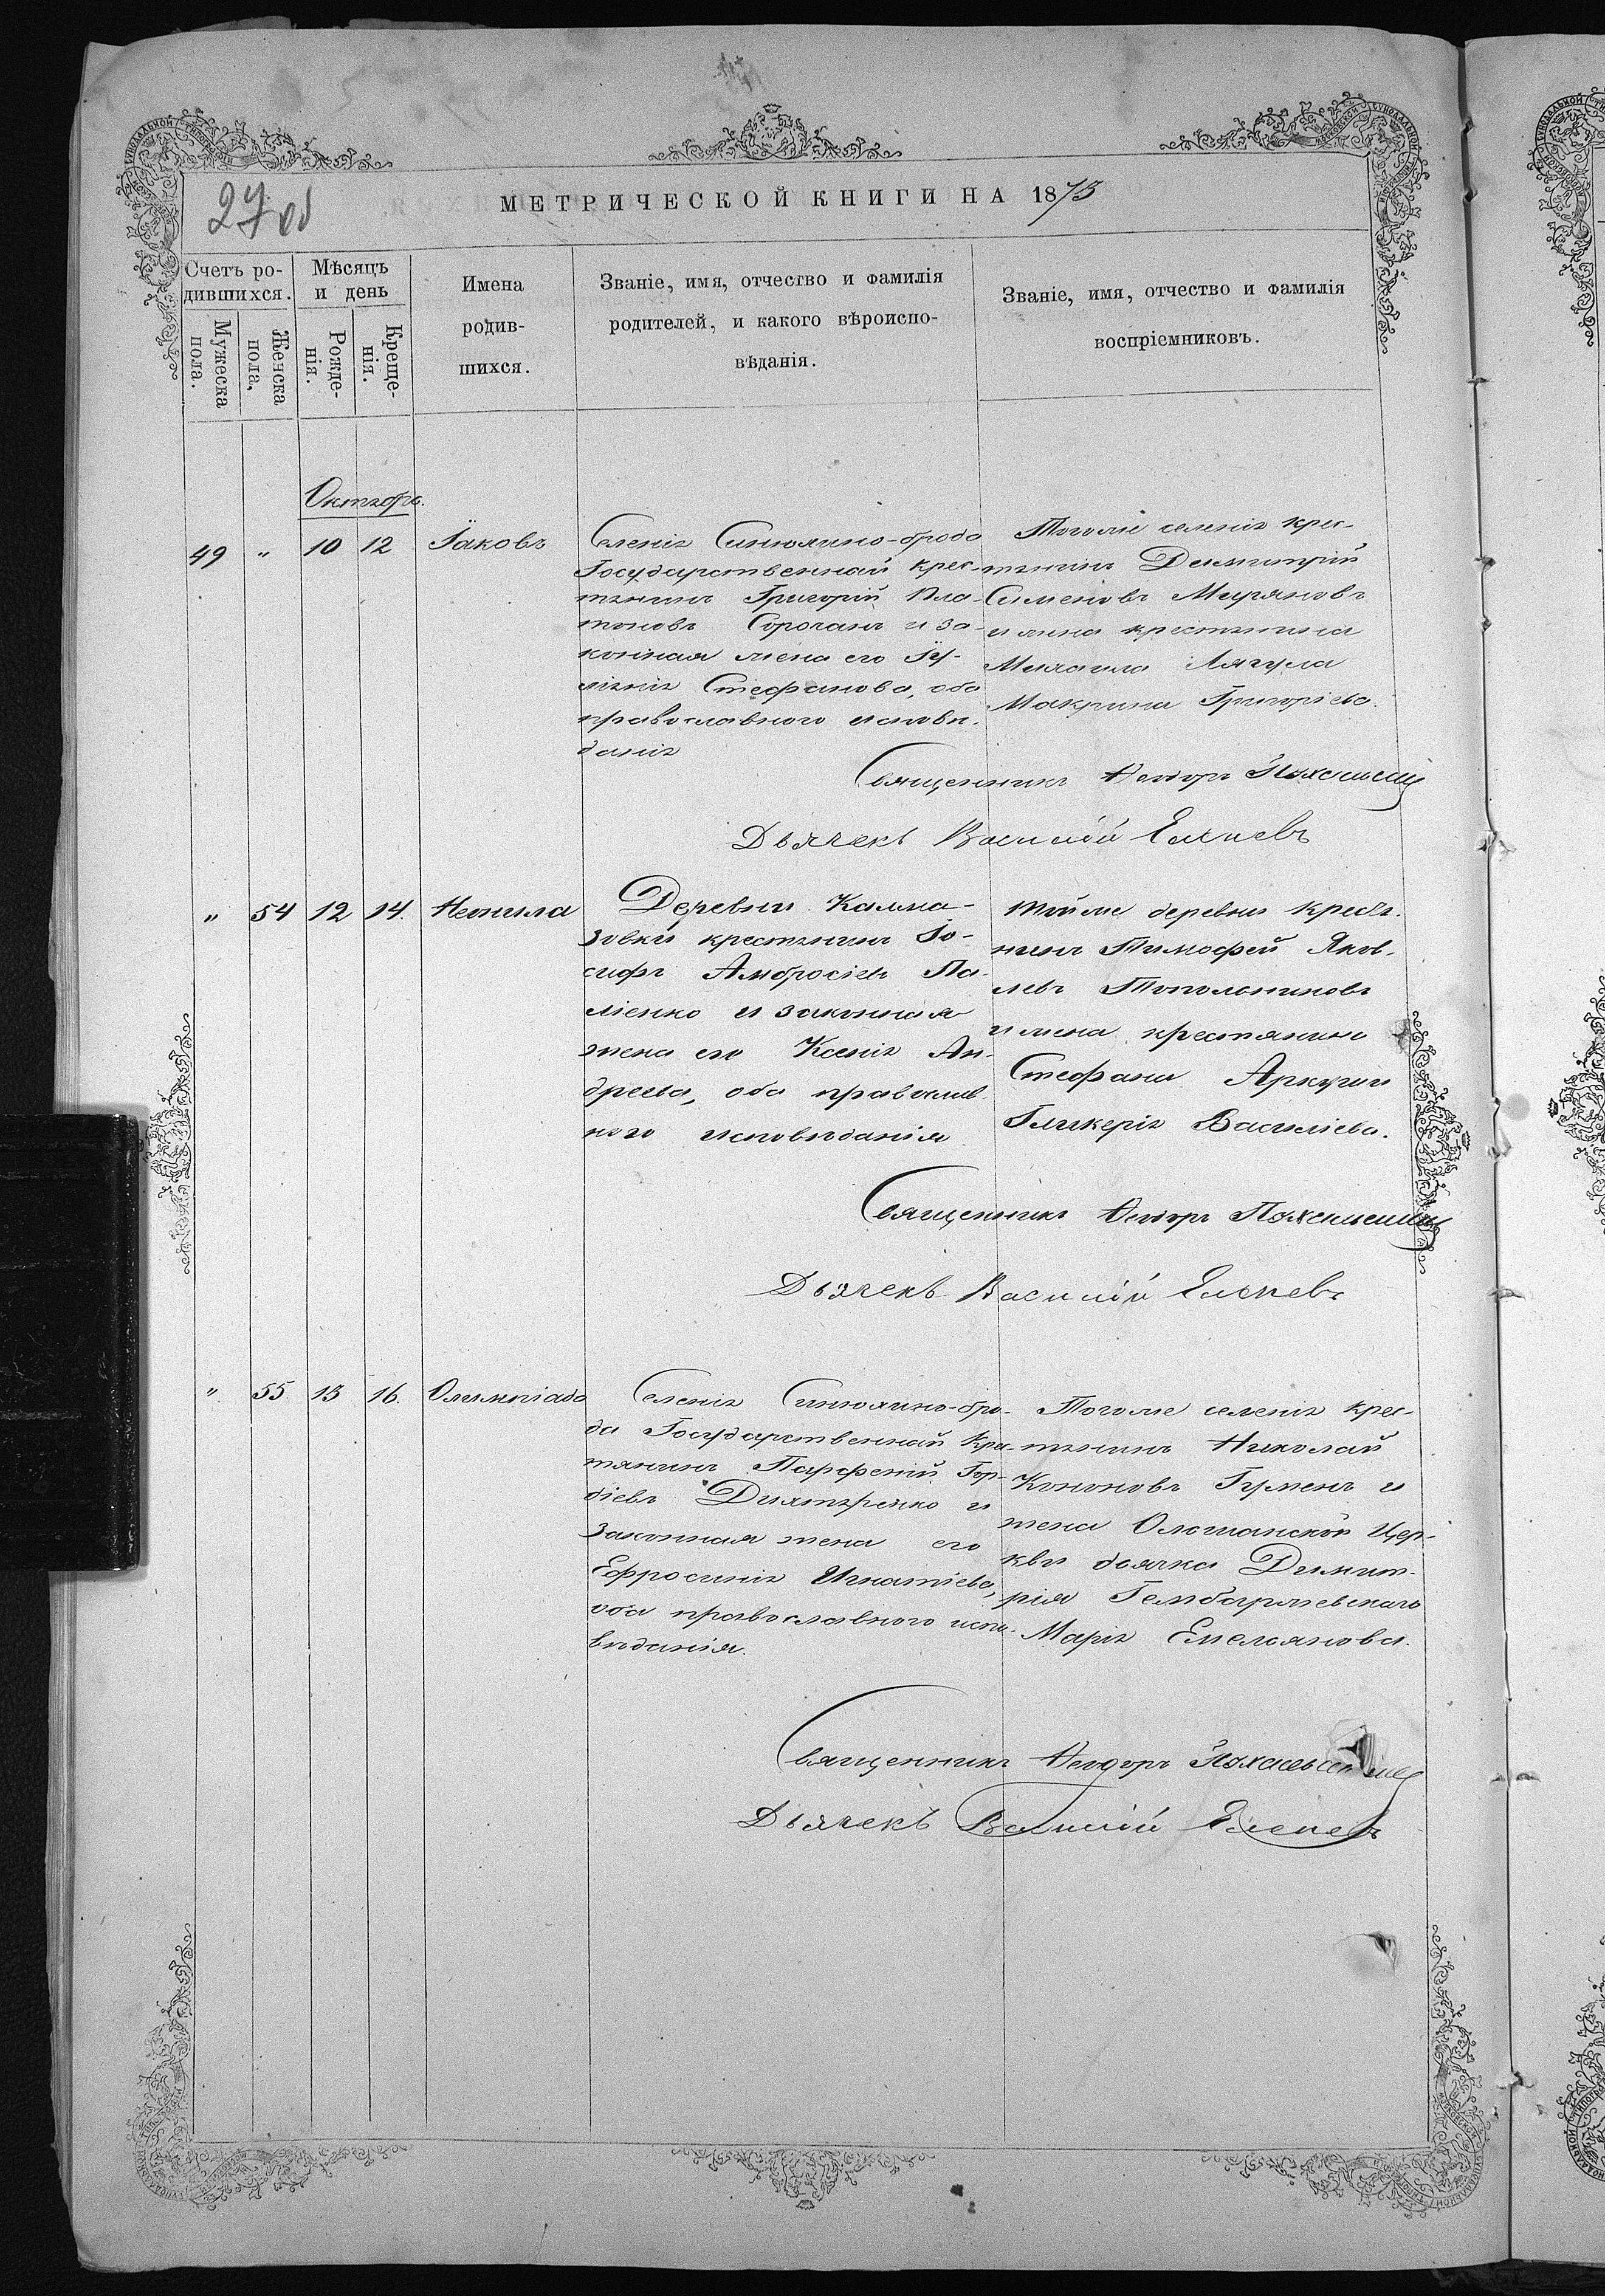 27 об
МЕТРИЧЕСКОЙ КНИГИ НА 1873
Счетъ ро-
дившихся.
Мужеска
пола.
Женска
пола,
Мѣсяцъ
и день
Рожде-
нія.
Креще-
нія.
Имена
родив-
шихся.
Званіе, имя, отчество и фамилія
родителей, и какого вѣроиспо-
вѣданія.
Званіе, имя, отчество и фамилія
воспріемниковъ.
Октября.
49 " 10 12 Іаковъ
Селенія Синюхино-брода
Государственный крес-
тянинъ Григорій Пла-
тоновъ Сорочанъ и за-
конная жена его Іу-
ліанія Стефанова, оба
православного исповѣ-
данія
Тогоже селенія крес-
тянинъ Димитрій
Сименовъ Миряновъ
и жена крестянина
Михаила Лягула
Макрина Григоріева.
Священникъ Феодоръ
Дьячекъ Василій
" 54 12 14. Неонила
Деревни Калма-
зовки крестянинъ Іо-
сифъ Амбросіевъ Па-
ліенко и законная
жена его Ксенія Ан-
дреева, оба православ
ного исповѣданія
Тойже деревни кресья-
нинъ Тимофей Яков-
левъ Топольниковъ
и жена крестянина
Стефана
Гликерія Василіева.
Священникъ Феодоръ
Дьячекъ Василій
" 55 13 16. Олимпіада
Селенія Синюхино-бро-
да Государственный Кре-
тянинъ Парфеній Гор-
діевъ и
законная жена его
Ефросинія Игнатіева,
оба православного испо-
вѣданія.
Тогоже селенія крес-
тянинъ Николай
Кононовъ Гуменъ и
жена Ольшанской Цер-
кви дьячка Димит-
рія
Марія Емельянова.
Священникъ Феодоръ
Дьячекъ Василій